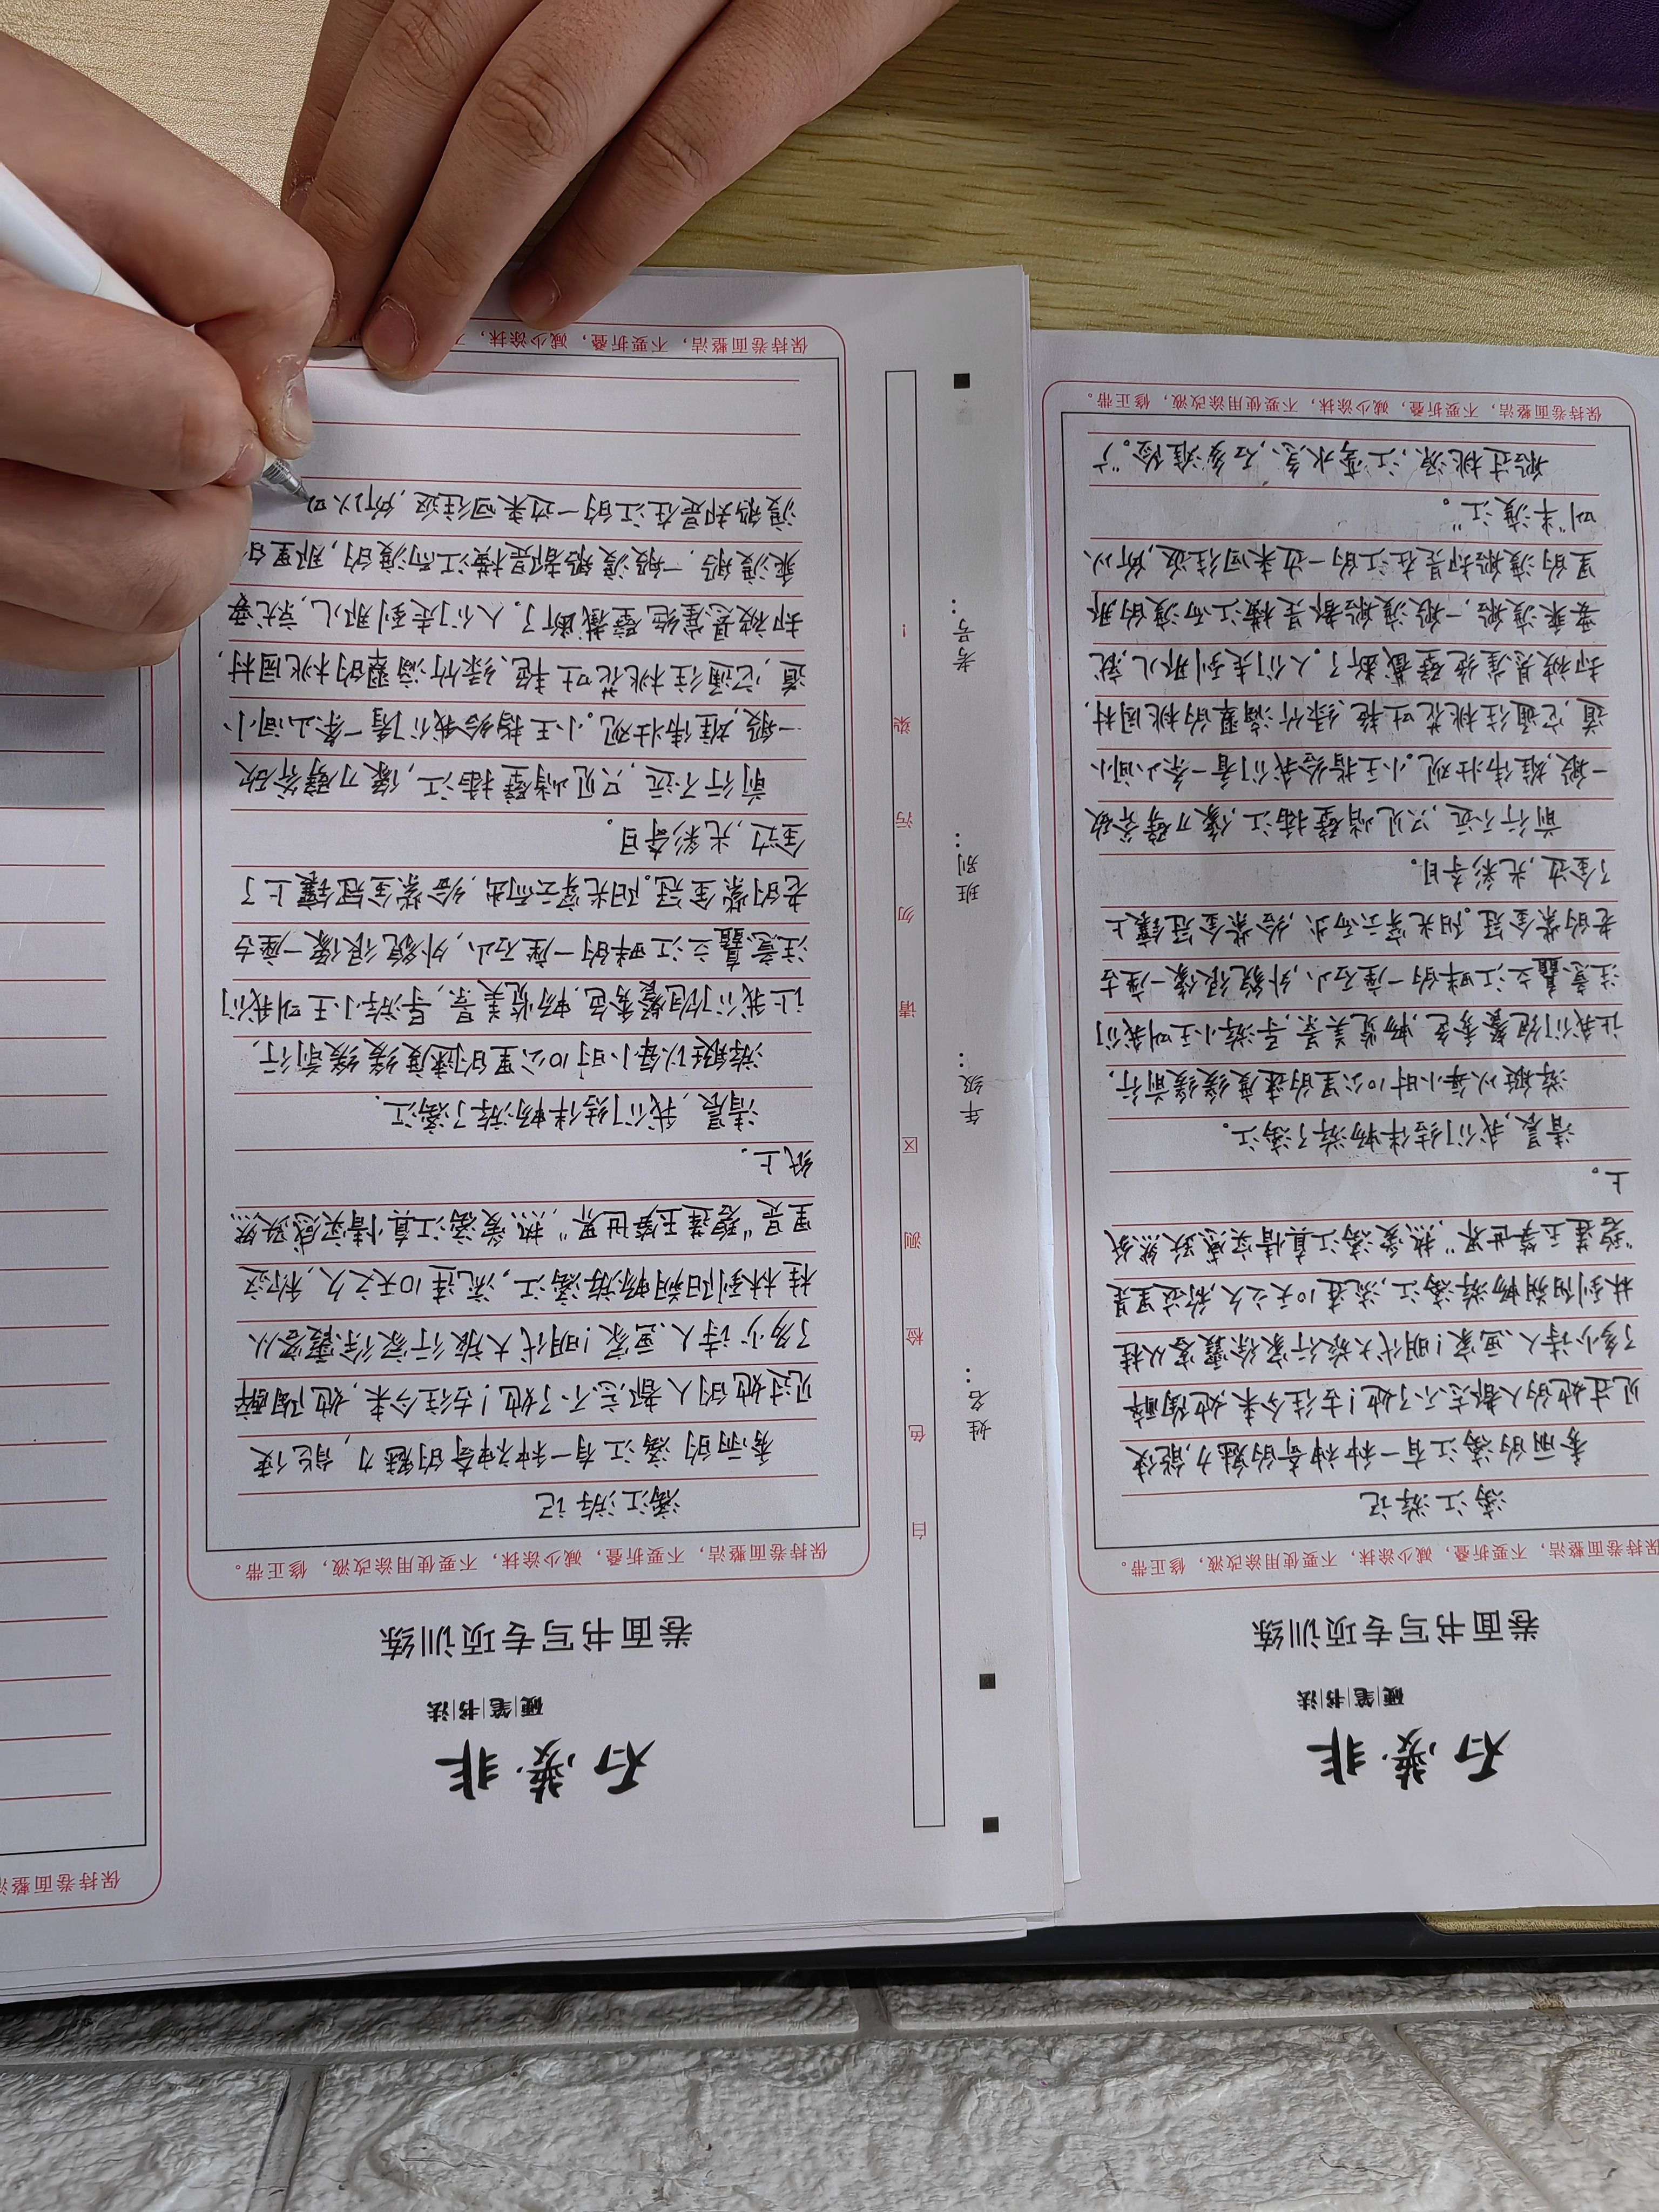 石夢非
硬笔书法
卷面书写专项训练
保持卷面整洁，不要折叠，减少涂抹，不要使用涂改液，修正带。
漓江游记
秀丽的漓江有一种神奇的魅力,能使
见过她的人都忘不了她!古往今来,她陶醉
了多少诗人、画家!明代大旅行家徐霞客从桂
林到阳朔畅游漓江,流连10天之久,称这里是
“碧莲玉笋世界”,热爱漓江真情实感跃然纸
上。
清晨,我们结伴畅游了漓江。
游艇以每小时10公里的速度缓缓前行,
让我们饱餐秀色,畅览美景,导游小王叫我们
注意矗立江畔的一座石山,外貌很像一座古
老的紫金冠。阳光穿云而出,给紫金冠镶上
了金边,光彩夺目。
前行不远,只见峭壁插江,像刀劈斧砍
一般,雄伟壮观。小王指给我们看一条山间小
道,它通往桃花吐艳、绿竹滴翠的桃园村,
却被悬崖绝壁截断了。人们走到那儿,就
要乘渡船,一般渡船都是横江而渡的那
里的渡船却是在江的一边来回往返,所以
叫“半渡江”。
船过桃源,江弯水急,石多滩险。“广
保持卷面整洁，不要折叠，减少涂抹，不要使用涂改液，修正带。
姓名：
年级：
班别：
考号：
白色检测区请勿污染！
石夢非
硬笔书法
卷面书写专项训练
保持卷面整洁，不要折叠，减少涂抹，不要使用涂改液，修正带。
漓江游记
秀丽的漓江有一种神奇的魅力,能使
见过她的人都忘不了她!古往今来,她陶醉
了多少诗人、画家!明代大旅行家徐霞客从
桂林到阳朔畅游漓江,流连10天之久,称这
里是“碧莲玉笋世界”,热爱漓江真情实感跃然
纸上.
清晨,我们结伴畅游了漓江.
游艇以每小时10公里的速度缓缓前行,
让我们饱餐秀色,畅览美景,导游小王叫我们
注意矗立江畔的一座石山,外貌很像一座古
老的紫金冠。阳光穿云而出,给紫金冠镶上了
金边,光彩夺目。
前行不远,只见峭壁插江,像刀劈斧砍
一般,雄伟壮观。小王指给我们看一条山间小
道,它通往桃花吐艳、绿竹滴翠的桃园村,
却被悬崖绝壁截断了.人们走到那儿,就要
乘渡船.一般渡船都是横江而渡的,那里
渡船却是在江的一边来回往返,所以
保持卷面整洁，不要折叠，减少涂抹，
保持卷面整